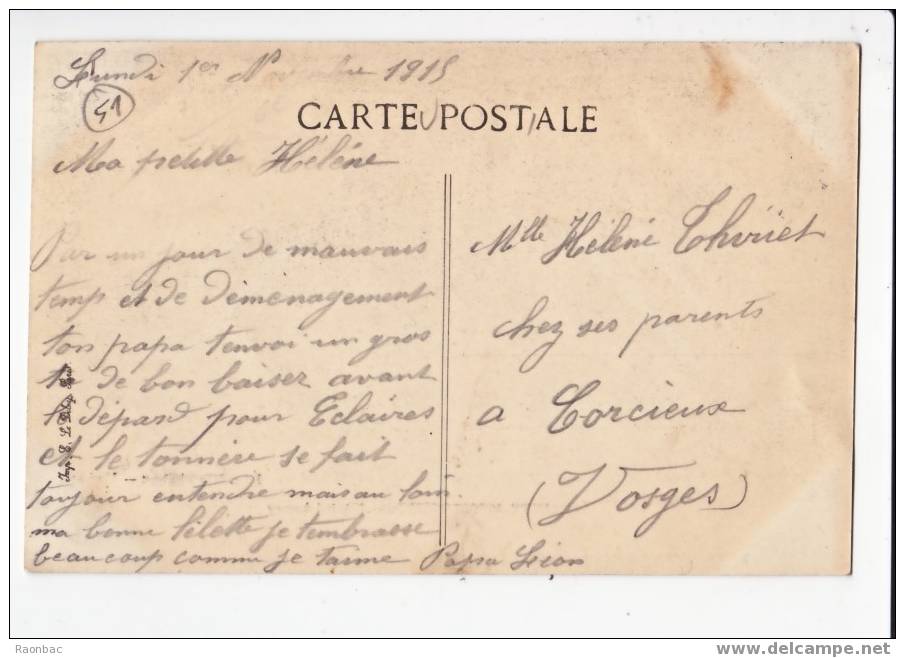 Lundi 1er Novembre 1915
51
CARTE POSTALE
Ma petitte Hélène
Par un jour de mauvais
temp et de démenagement
ton papa t'envoi un gros
de bon baiser avant
le dépard pour Eclaires
et le tonnère se fait
toujour entendre mais au loin
ma bonne lélette je t'embrasse
beaucoup comme je t'aime Papa Léon
Mlle Hélène Thiriet
chez ses parents
a Corcieux
(Vosges)
Imp. E. Le Deley, Paris
Raonbac
www.delcampe.com